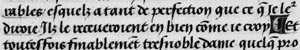 tables esquelz a tant de perfection que ce q̃ Je lé
diroie Ilz le treuueront en bien cõme ie croy Et
toutesfois finablement tresnoble dame quelq̃ p